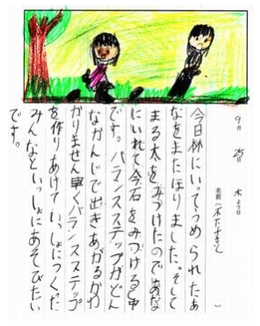 9月 25日 木よう日
名前(
今日林にいってうめられたあ
なをまたほりました。そして
まる太をみつけたのであな
にいれて今石をみつける中
です。バランスステップがどん
なかんじで出きあがるかわ
かりません早くバランスステップ
を作りあげていっしょにつくった
みんなといっしょにあそびたい
です。